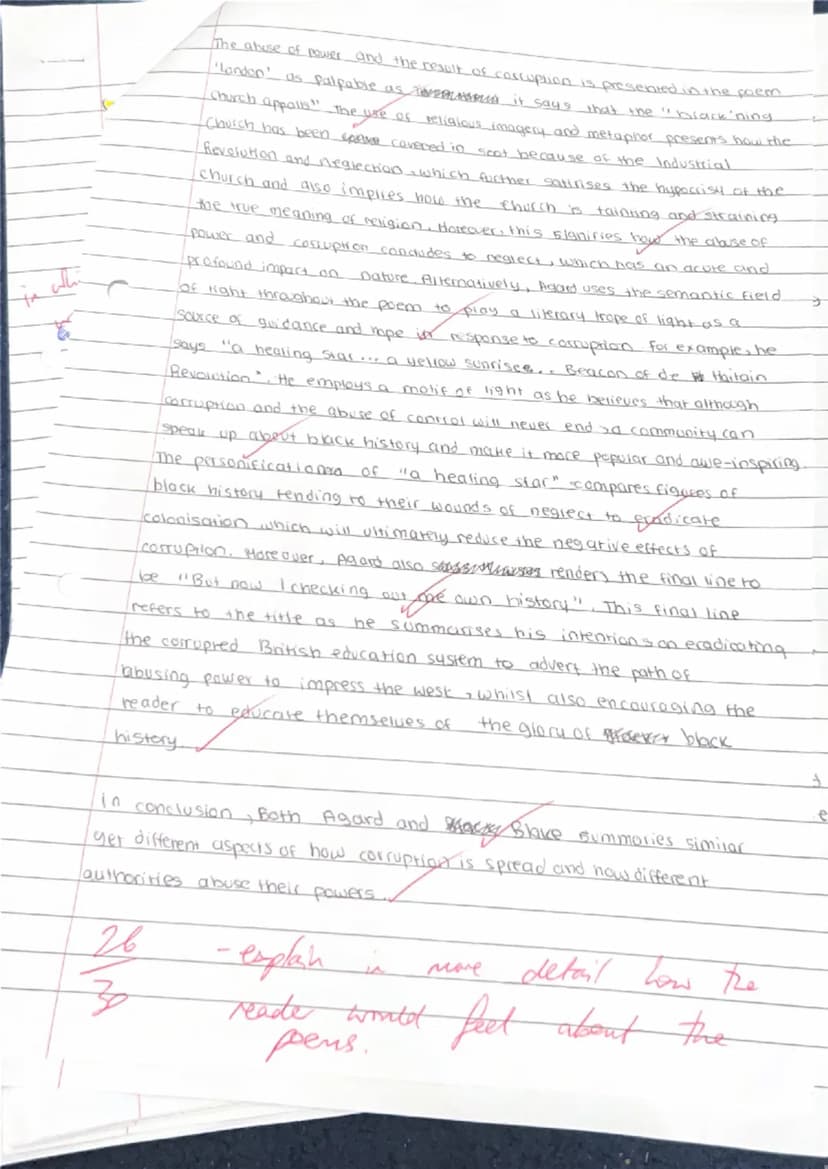 The abuse of power and the result of corruption is presented in the poem
'London' as palpable as it says that the "black'ning
church appalls" The use of religious imagery and metaphor presents how the
Church has been covered in scot because of the Industrial
Revolution and neglection, which further satirises the hypocrisy of the
church and also implies how the church is tainting and straining
the true meaning of religion. Moreover, this signifies how the abuse of
power and corruption concludes to neglect, which has an acute and
profound impact on nature. Alternatively, Agard uses the semantic field
of light throughout the poem to play a literary trope of light as a
source of guidance and hope in response to corruption. For example, he
says "a healing star... a yellow sunrise... Beacon of de Haitain
Revolution". He employs a motif of light as he believes that although
corruption and the abuse of control will never end, a community can
speak up about black history and make it more popular and awe-inspiring.
The personification of "a healing star" compares figures of
black history tending to their wounds of neglect to eradicate
colonisation which will ultimately reduce the negative effects of
corruption. Moreover, Agard also renders the final line to
be "But now I checking out me own history". This final line
refers to the title as he summarises his intentions on eradicating
the corrupted British education system to advert the path of
abusing power to impress the west, whilst also encouraging the
reader to educate themselves of the glory of black
history.
In conclusion, Both Agard and Blake summaries similar
yet different aspects of how corruption is spread and how different
authorities abuse their powers.
26
30
- explain in more detail how the
reader would feel about the
poems.